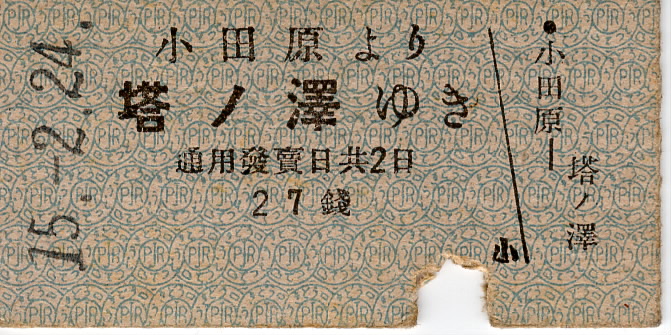 15.-2.24.
小田原より
塔ノ澤ゆき
通用發賣日共2日
27錢
小田原―
塔ノ澤
小